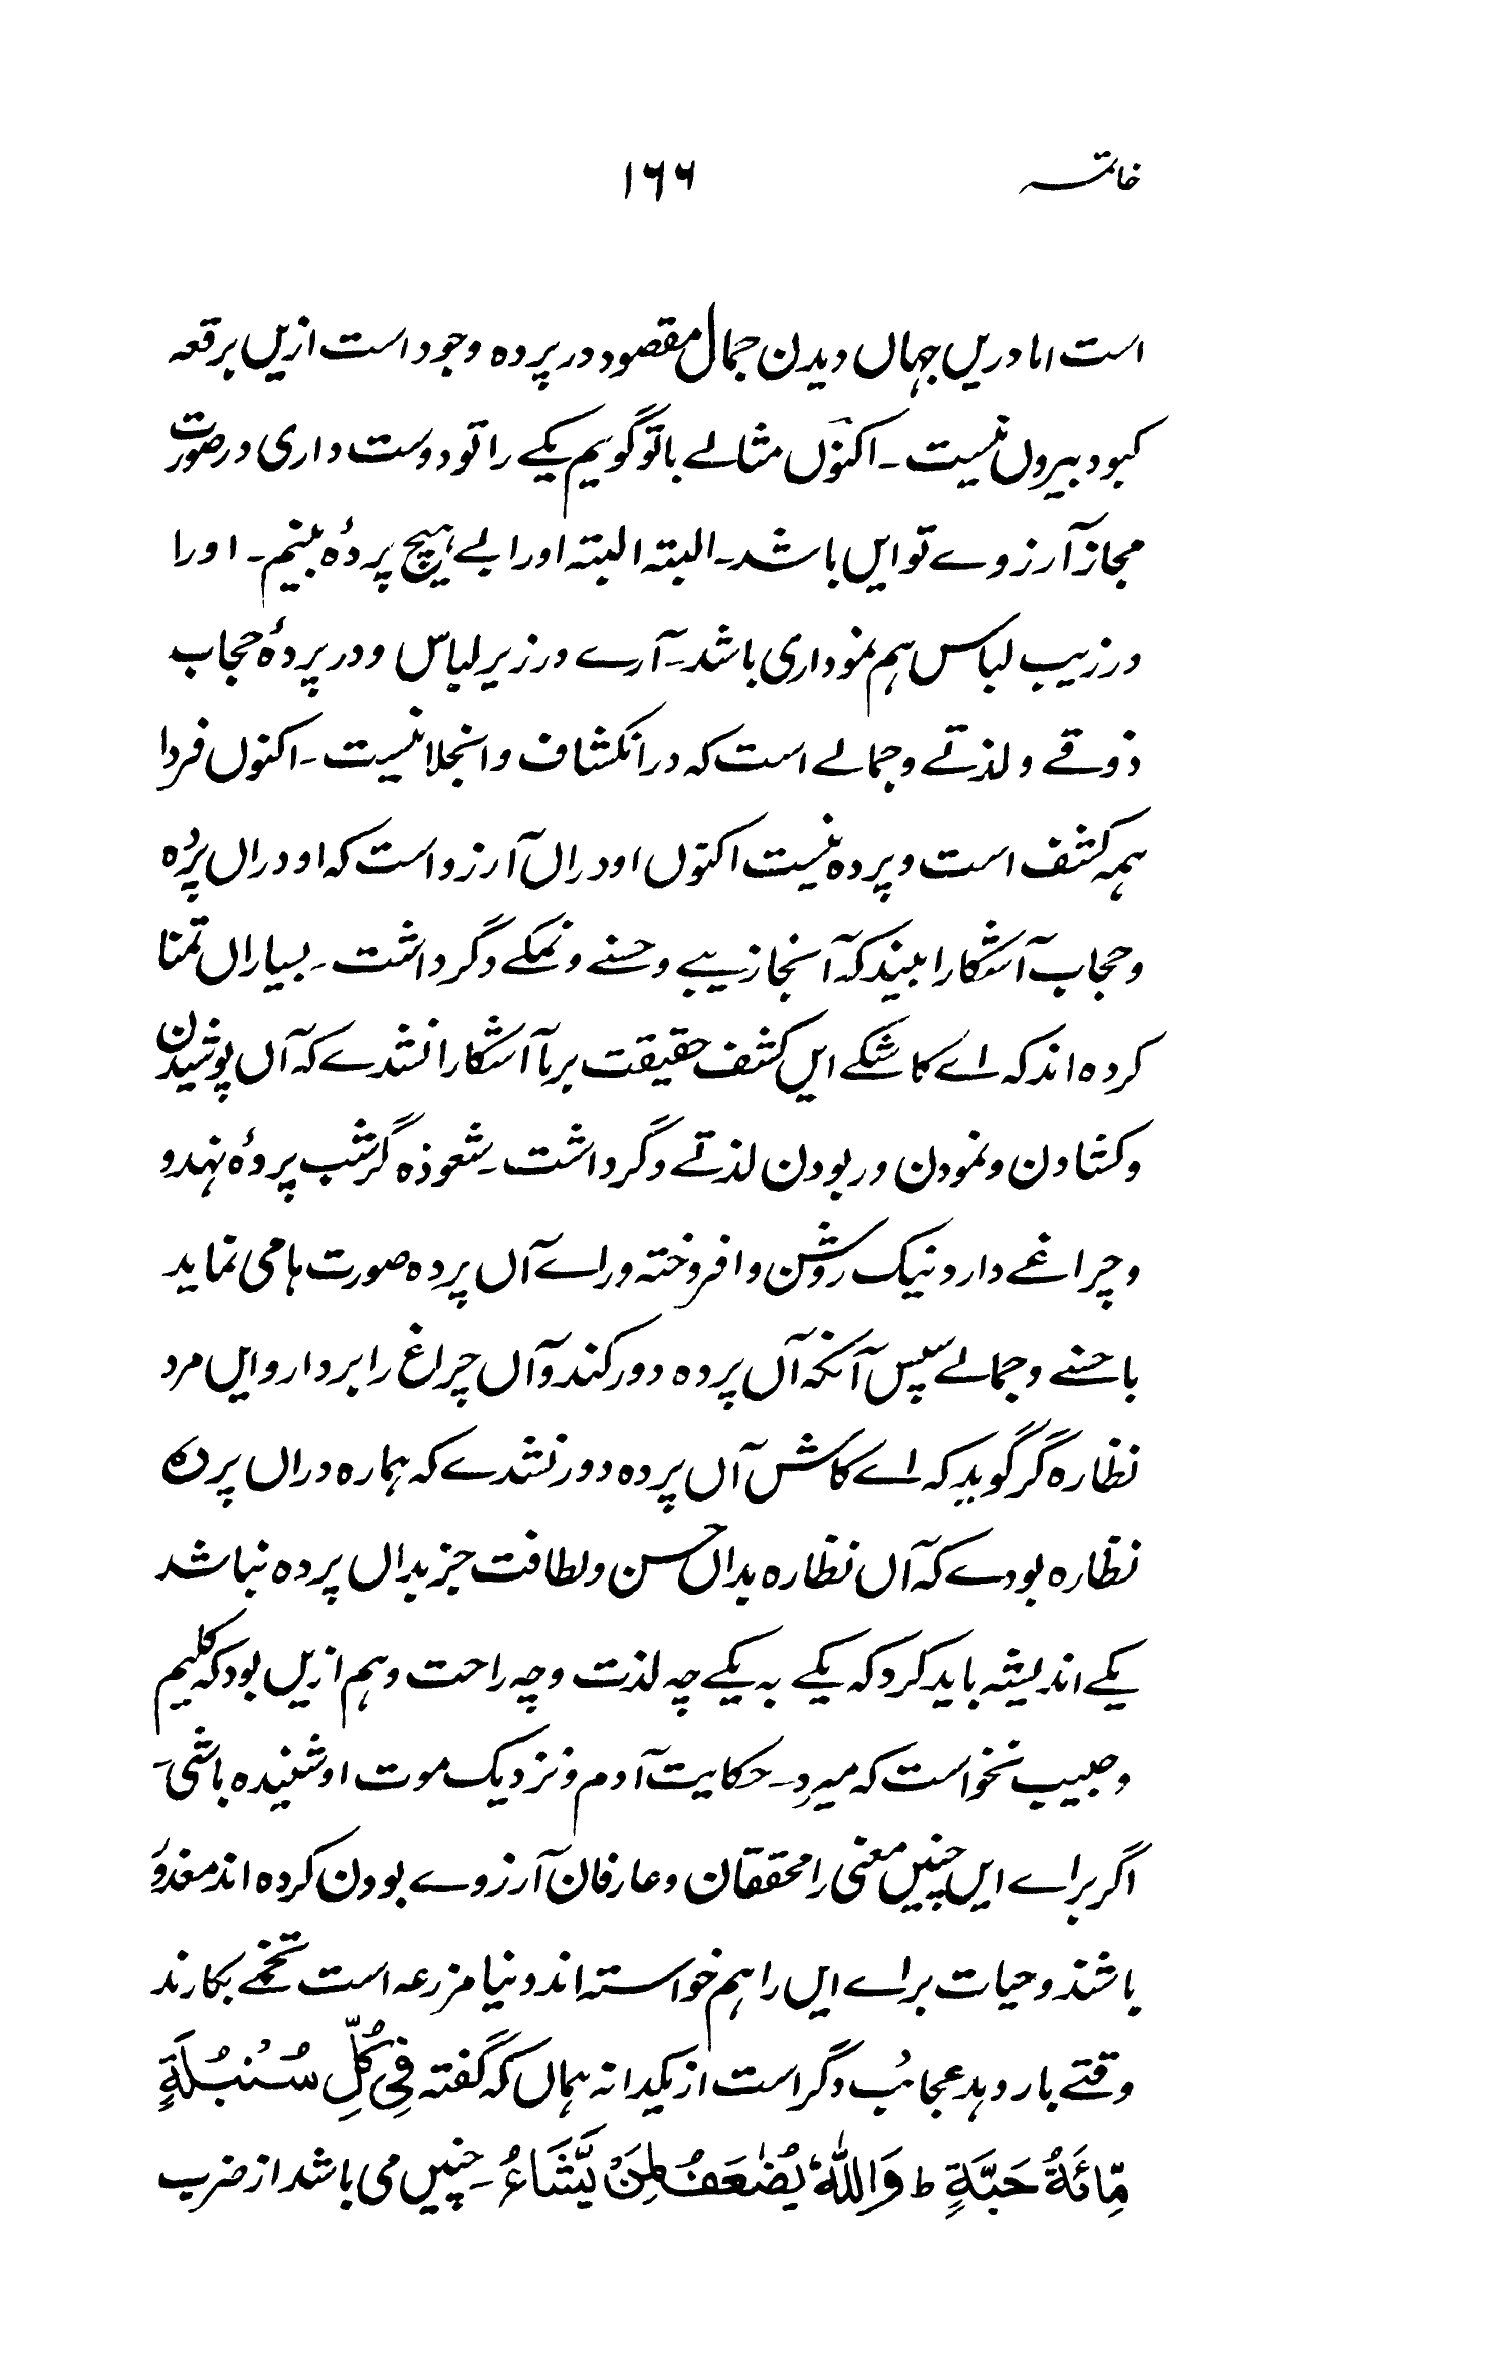 خاتمہ ۱۶۶
است اما دریں جہاں دیدن جمال مقصود در پردہ وجود است ازیں برقعہ
کبود بیروں نیست۔ اکنوں مثالے باتو گویم یکے را تو دوست داری در صورت
مجاز آرزوے تو ایں باشد۔ البتہ البتہ اورا بے ہیچ پردۂ بینم۔ اورا
در زیب لباس ہم نموداری باشد۔ آرے در زیر لباس و در پردۂ حجاب
ذوقے و لذتے و جمالے است کہ در انکشاف و انجلا نیست۔ اکنوں فردا
ہمہ کشف است و پردہ نیست اکنوں او دراں آرزو است کہ او دراں پردہ
و حجاب آشکارا بیند کہ آنجا زیبے و حسنے و نمکے دگر داشت۔ بسیاراں تمنا
کردہ اند کہ اے کاشکے ایں کشف حقیقت برما آشکارا نشدے کہ آں پوشیدن
و کشادن و نمودن و ربودن لذتے دگر داشت۔ شعوذہ گر شب پردۂ نہد و
و چراغے دارد نیک روشن و افروختہ وراے آں پردہ صورت ہا می نماید
با حسنے و جمالے سپس آنکہ آں پردہ دور کند و آں چراغ را بردار و ایں مرد
نظارہ گر گوید کہ اے کاش آں پردہ دور نشدے کہ ہمارہ دراں پردہ
نظارہ بودے کہ آں نظارہ بداں حسن و لطافت جز بداں پردہ نباشد
یکے اندیشہ باید کرد کہ یکے بہ یکے چہ لذت و چہ راحت و ہم ازیں بود کہ کلیم
و حبیب نخواست کہ میرد۔ حکایت آدم و نزدیک موت او شنیدہ باشی۔
اگر براے ایں چنیں معنی را محققان و عارفان آرزوے بودن کردہ اند معذور
باشند و حیات براے ایں را ہم خواستہ اند دنیا مزرعہ است تخمے بکارند
وقتے بار دہد عجائب دگر است از یکدانہ ہماں کہ گفتہ فِیْ کُلِّ سُنْبُلَةٍ
مِّائَةُ حَبَّةٍ ط وَاللّٰهُ یُضٰعَفُ لِمَنْ یَّشَآءُ۔ چنیں می باشد از ضرب